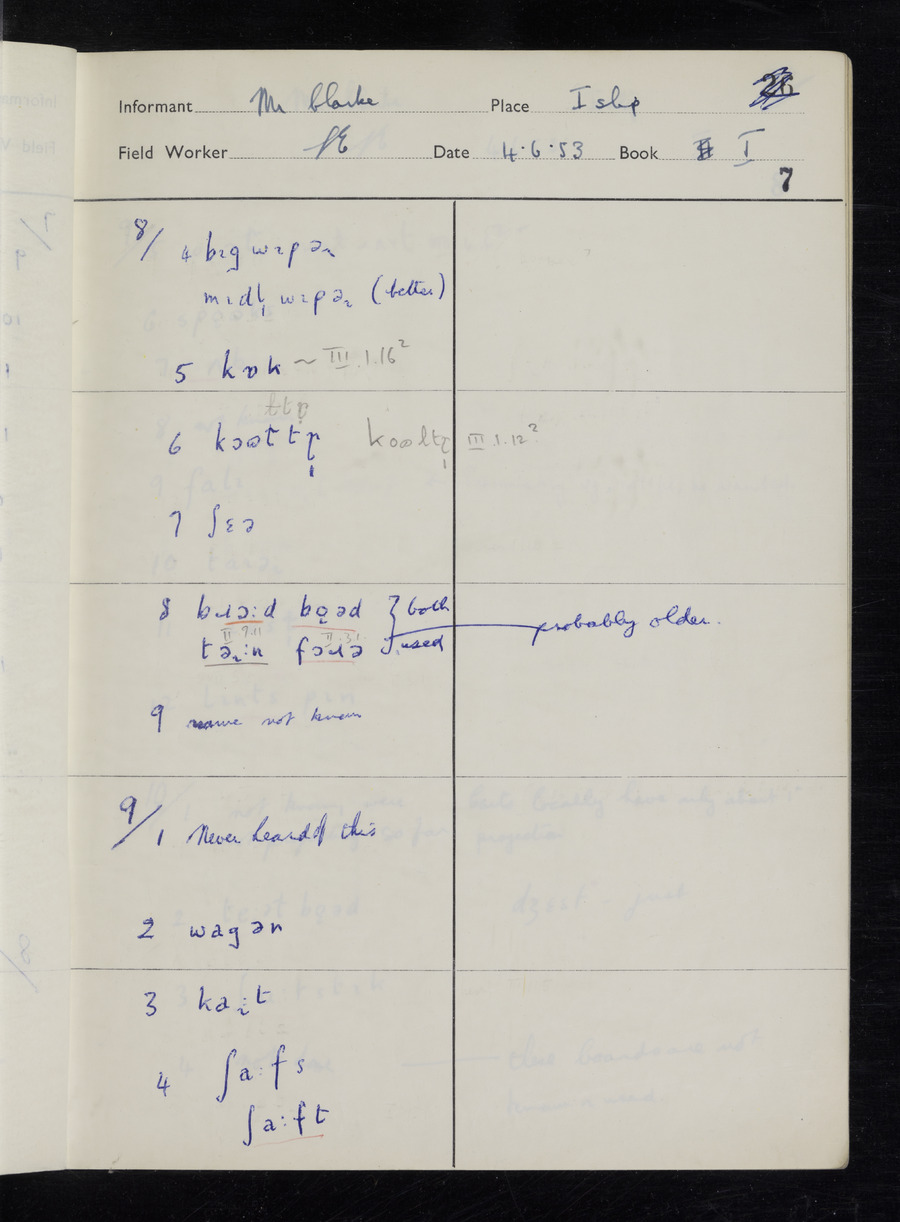 Informant Mr Clarke Place Islip
Field Worker SE Date 4.6.53 Book I
7
8/ 4 bɪg wɪpəɹ
mɪdl̩ wɪpəɹ (better)
5 kɒk ~ III.1.16²
6 III.1.12²
7 ʃɛə
8 bɹɔ:d bo̜əd } both
II 9.11 II.3.1
təɹ:n fəɹə used probably older.
9 name not known
9/ 1 Never heard of this
2 wagən
3 kaɹ:t
4 ʃa:fs
ʃa:ft